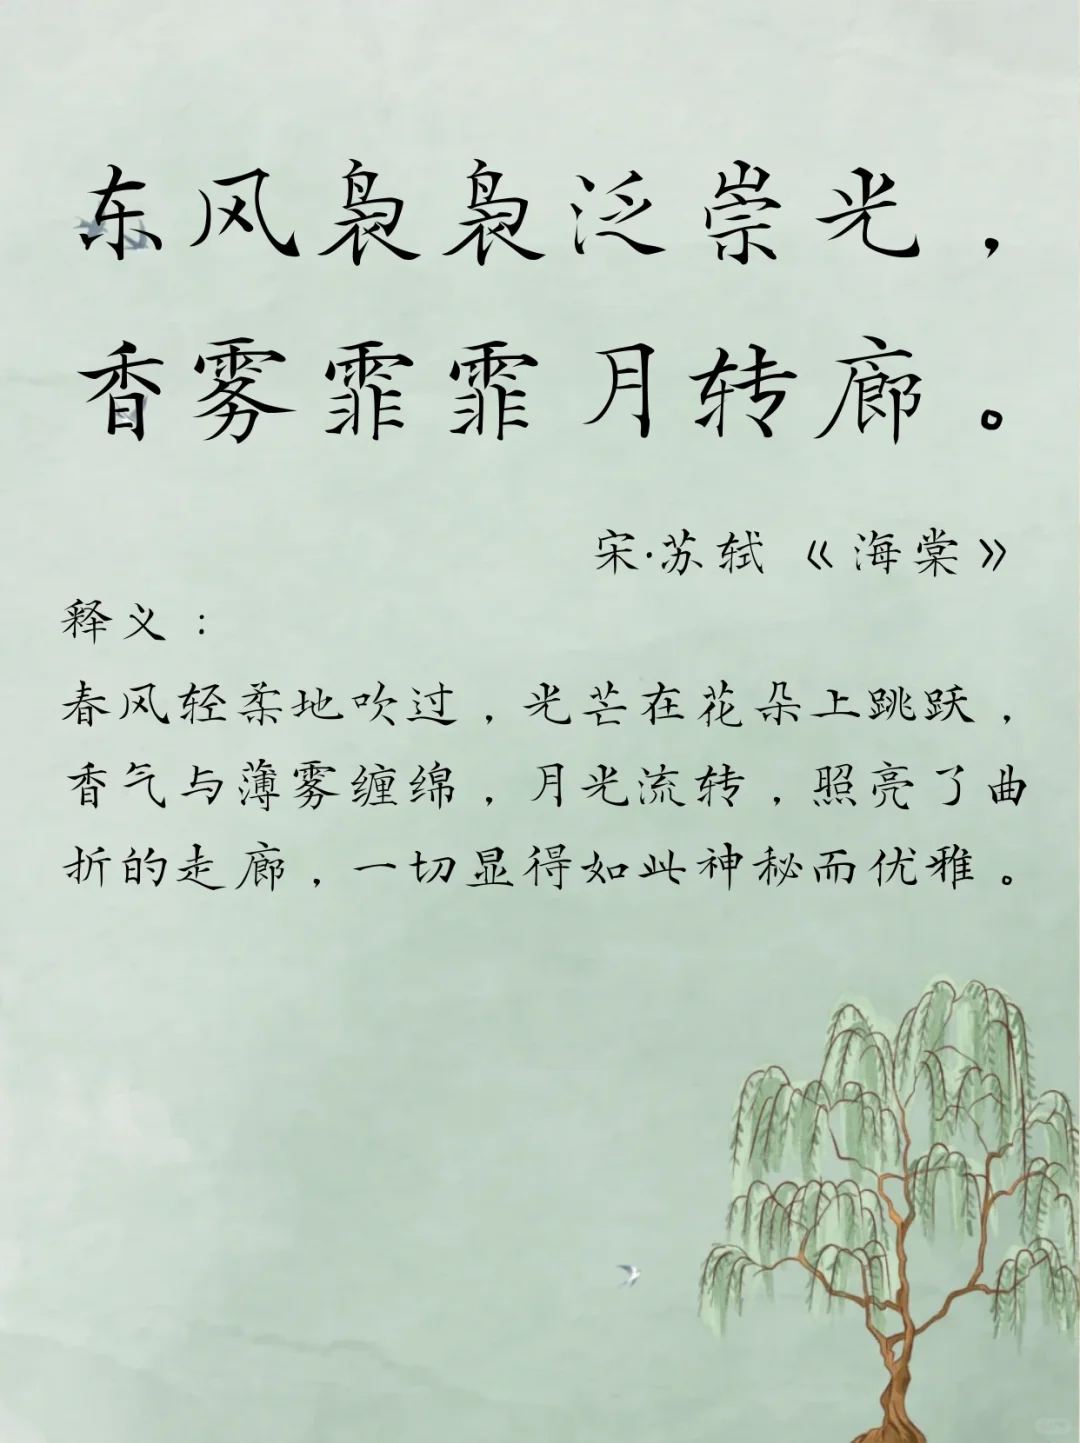 东风袅袅泛崇光，
香雾霏霏月转廊。
宋·苏轼《海棠》
释义：
春风轻柔地吹过，光芒在花朵上跳跃，
香气与薄雾缠绵，月光流转，照亮了曲
折的走廊，一切显得如此神秘而优雅。